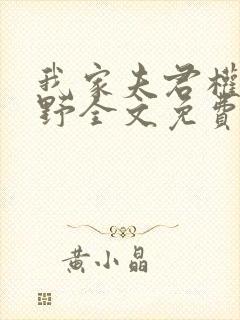 我家夫君權
野全文免費
黄小晶